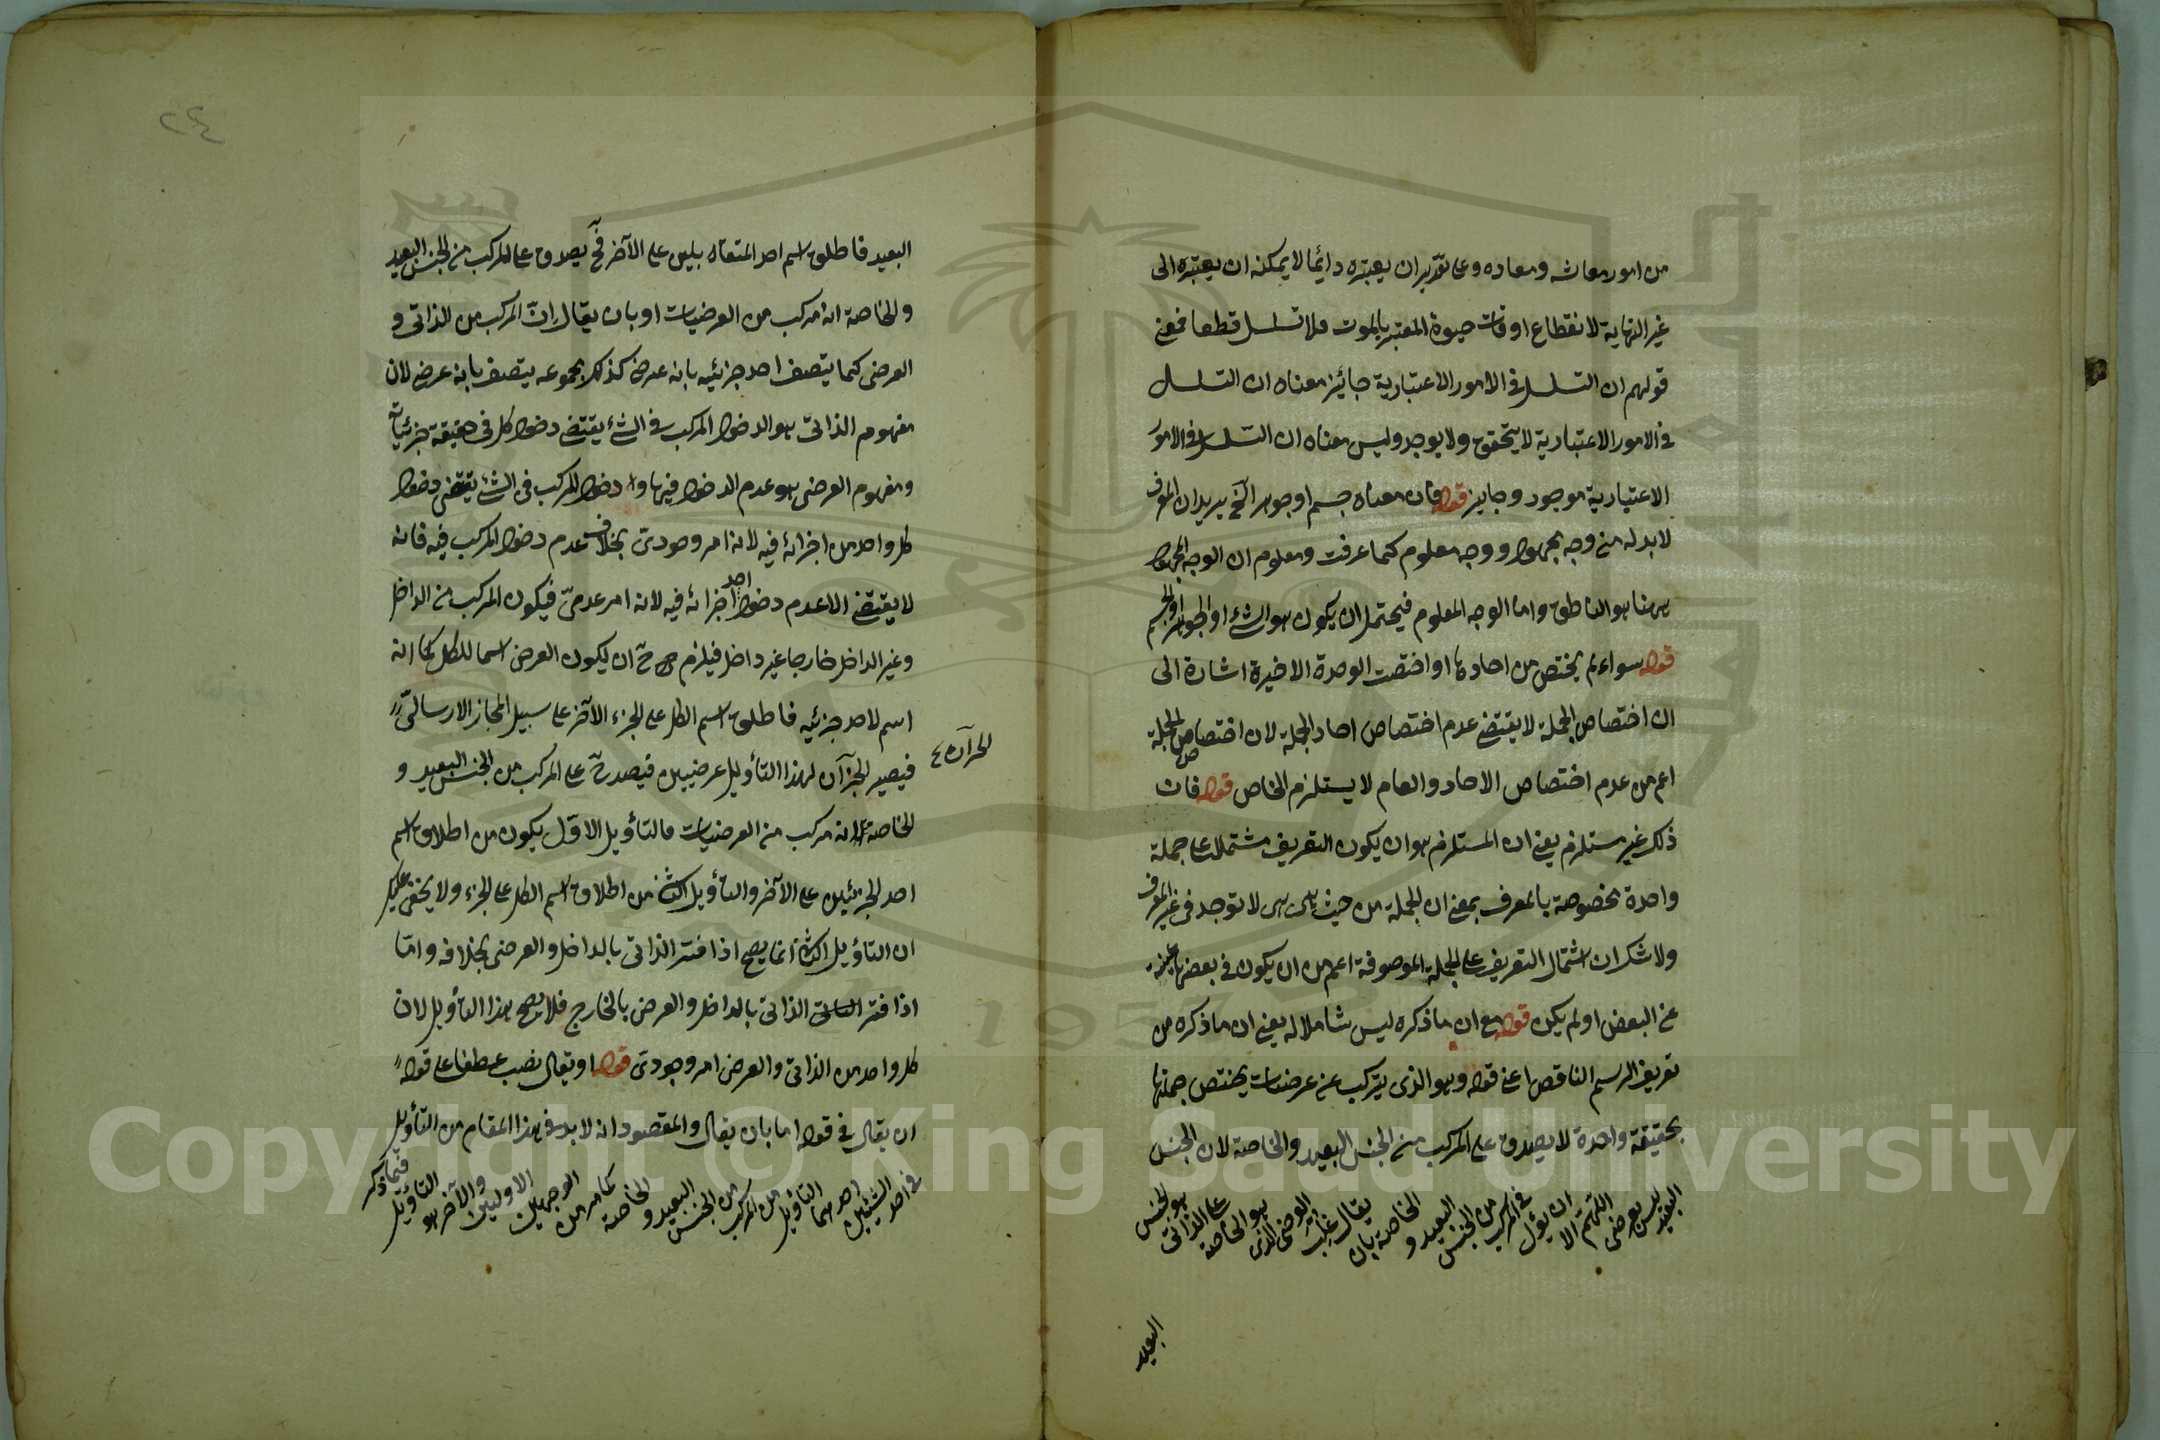 من امور معاشه ومعاده وعلى تقدير ان يعتبره دائما لا يمكنه ان يعتبره الى
غير النهاية لانقطاع اوقات حيوة المعتبر بالموت فلا تسلسل قطعا فمعنى
قولهم ان التسلسل في الامور الاعتبارية جائز معناه ان التسلسل
في الامور الاعتبارية لا يتحقق ولا يوجد وليس معناه ان التسلسل في الامور
الاعتبارية موجود وجايز قوله فان معناه جسم او جوهر الخ يريد ان المعرف
لا بد له من وجه مجهول ووجه معلوم كما عرفت ومعلوم ان الوجه المجهول
ههنا هو الناطق واما الوجه المعلوم فيحتمل ان يكون هو الشئ او الجوهر او الجسم
قوله سواء لم يختص من احادها او اختصت الوحدة الاخيرة اشارة الى
ان اختصاص الجملة لا يقتضى عدم اختصاص احاد الجملة لان اختصاص الجملة
اعم من عدم اختصاص الاحاد والعام لا يستلزم الخاص قوله فان
ذلك غير مستلزم يعنى ان المستلزم هو ان يكون التعريف مشتملا على جملة
واحدة مخصوصة بالمعرف بمعنى ان الجملة من حيث هى هى لا توجد في غير المعرف
ولا شك ان اشتمال التعريف على الجملة الموصوفة اعم من ان يكون في بعضها
عن البعض او لم يكن قوله مع ان ما ذكره ليس شاملا له يعنى ان ما ذكره من
تعريف الرسم الناقص اعنى قوله وهو الذى يتركب عن عرضيات يختص جملتها
بحقيقة واحدة لا يصدق على المركب من الجنس البعيد والخاصة لان الجنس
البعيد ليس بعرضى اللهم الا ان يؤل في المركب من الجنس البعيد والخاصة بان يقال غلب العرضى الذى هو الخاصة على الذاتى هو الجنس
البعيد
٢٤
البعيد فاطلق اسم احد المتقابلين على الآخر فح يصدق على المركب من الجنس البعيد
والخاصة انه مركب من العرضيات او بان يقال ان المركب من الذاتى و
العرضى كما يتصف احد جزئيه بانه عرض كذلك مجموعه يتصف بانه عرض لان
مفهوم الذاتى هو الدخول المركب في الشئ يقتضى دخول كل في حقيقة جزئياته
ومفهوم العرضى هو عدم الدخول فيها و دخول المركب في الشئ يقتضى دخول
كل واحد من اجزائه فيه لانه امر وجودى بخلاف عدم دخول المركب فيه فانه
لا يقتضى الا عدم دخول احد اجزائه فيه لانه امر عدمى فيكون المركب من الداخل
وغير الداخل خارجا غير داخل فيلزم ح ان يكون العرض اسما للكل كما انه
اسم لاحد جزئيه فاطلق اسم الكل على الجزء الآخر على سبيل المجاز الارسالى
فيصير الجزآن لهذا التأويل عرضيين فيصدق على المركب من الجنس البعيد و
الجزآن
الخاصة انه مركب من العرضيات فالتأويل الاول يكون من اطلاق اسم
احد الجزئين على الآخر والتأويل الثانى من اطلاق اسم الكل على الجزء ولا يخفى عليك
ان التأويل الثانى انما يصح اذا فسر الذاتى بالداخل والعرضى بخلافه واما
اذا فسر الذاتى بالداخل والعرض بالخارج فلا يصح هذا التأويل لان
كل واحد من الذاتى والعرض امر وجودى قوله او يقال نصب عطفا على قوله
ان يقال في قوله اما بان يقال والمقصود انه لا بد في هذا المقام من التأويل
في احد الشيئين احدهما التأويل من المركب من الجنس البعيد والخاصة كما مر من الوجهين الاولين والآخر هو التأويل فيما ذكر